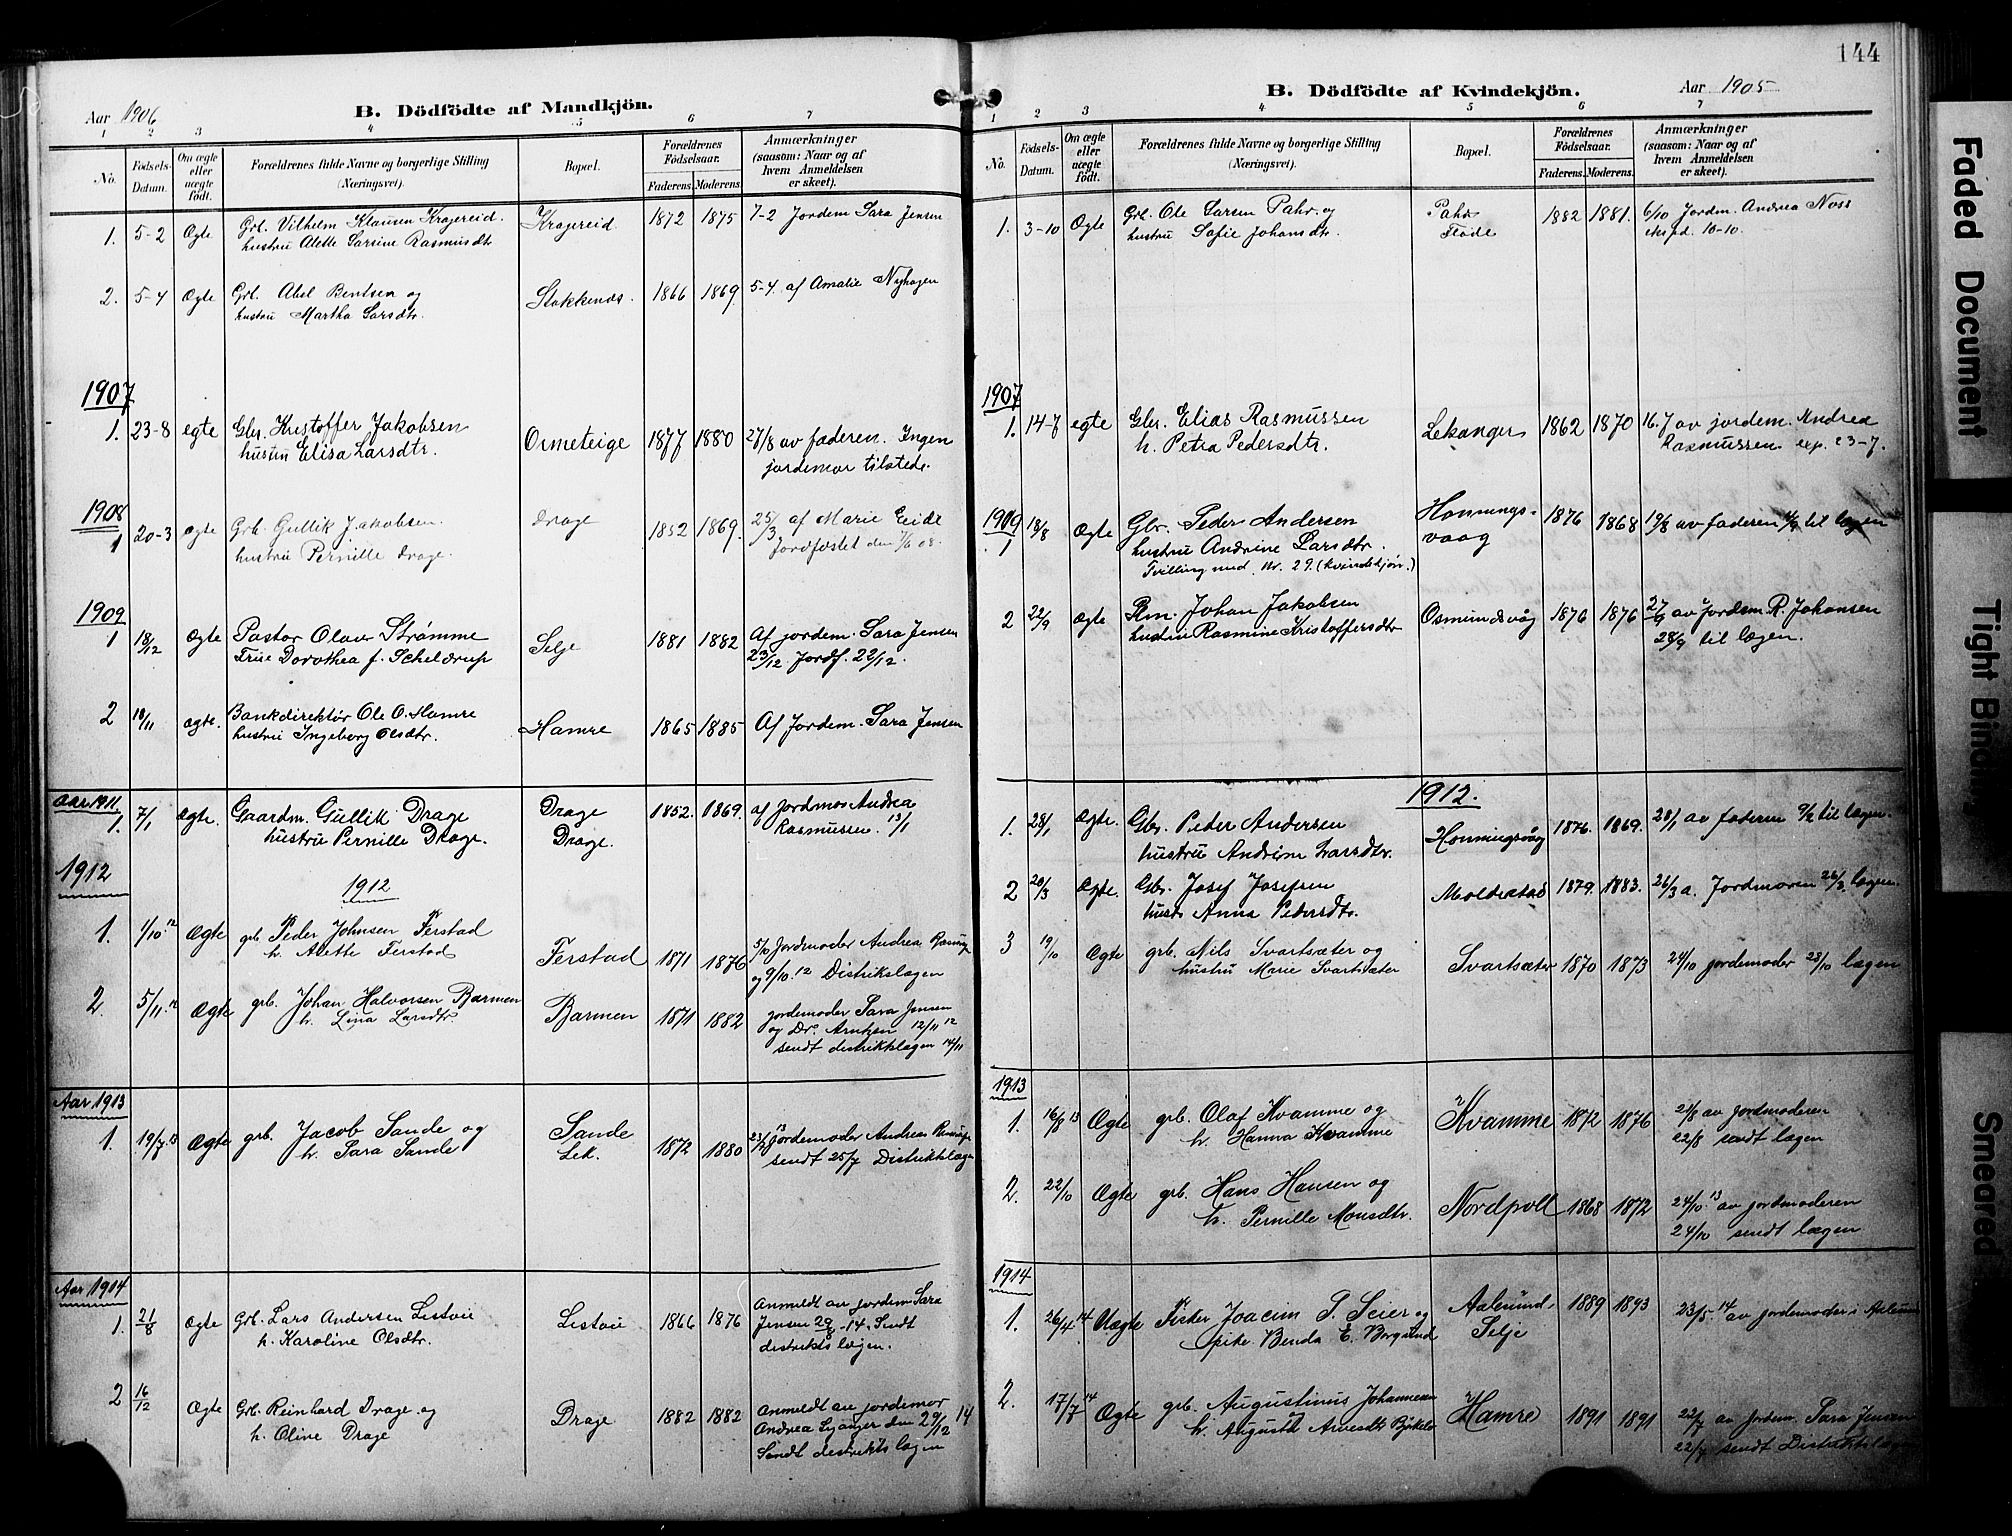 144
Aar 1906
B. Dödfödte af Mandkjön.
1 2 3 4 5 6 7
No.
Födsels-Datum.
Om ægte eller uægte födt.
Forældrenes fulde Navne og borgerlige Stilling (Næringsvei).
Bopæl.
Forældrenes Födselsaar.
Faderens. Moderens.
Anmærkninger (saasom: Naar og af hvem Anmeldelsen er skeet).
1. 5-2 Ægte Grb. Vilhelm Klausen Krajereid. Krajereid. 1872 1875 7-2 Jordem Sara Jensen
hustru Alette Larsine Rasmusdtr
2. 5-4 Ægte Grb. Abel Bentsen og Stokkenes. 1866 1869 5-4 af Amalie Nyhagen
hustru Martha Larsdtr.
1907
1. 23-8 egte Gbr. Kristoffer Jakobsen Ormeteige 1877 1880 27/8 av faderen. Ingen
hustru Elisa Larsdtr. jordemor tilstede.
1908
1 20-3 ægte Grb. Gullik Jakobsen Drage 1852 1869. 25/3 af Marie Eide
hustru Pernille Drage. Jordfæstet den 7/6 08.
1909
1 18/12 ægte Pastor Olaver Strømme Selje 1881 1882 Af jordem. Sara Jensen
Frue Dorothea f. Scheldrup 23/12. Jordf. 22/12.
2 18/11 ægte. Bankdirektør Ole O. Hamre Hamre 1865 1885 Af Jordem. Sara Jensen
hustru Ingeborg Olsdtr.
Aar 1911
1. 7/1 Ægte. Gaardm. Gullik Drage Drage 1852. 1869. af Jordmor Andrea
hustru Pernille Drage. Drage. Rasmussen. 13/1
1912
1912
1. 1/10 12 Ægte grb Peder Johnsen Ferstad Ferstad 1871 1876 5/10 Jordmoder Andrea
h. Alette Ferstad og 9/10. 12 Distriktslægen
2. 5/11. 12 Ægte grb. Johan Halvorsen Barmen Barmen 1871 1882 jordemoder Sara Jensen
h. Lina Larsdtr. og Dr. Arntzen 12/11 12
sendt distriktslægen 14/11
Aar 1913
1. 19/7 13 Ægte grb. Jacob Sande og Sande 1872 1880 23/7 13 Jordemoder Andrea
h. Sara Sande Lek. sendt 25/7 Distriktslægen
Aar 1914
1. 21/8 Ægte Grb. Lars Andersen Listou Listou 1866 1876 Anmeldt av jordem Sara
h. Karoline Olsdtr. Jensen 29/8 -14. Sendt
distriktslægen.
2 16/12 Ægte Grb. Reinhard Drage og Drage 1882 1882 Anmeldt av jordemor
h. Oline Drage Andrea den 29/12 14
Sendt distriktslægen
B. Dödfödte af Kvindekjön.
Aar 1905
1 2 3 4 5 6 7
No.
Födsels-Datum.
Om ægte eller uægte födt.
Forældrenes fulde Navne og borgerlige Stilling (Næringsvei).
Bopæl.
Forældrenes Födselsaar.
Faderens. Moderens.
Anmærkninger (saasom: Naar og af hvem Anmeldelsen er skeet).
1. 3-10 Ægte Grb. Ole Larsen Pahr og Pahr 1882 1881. 6/10 Jordm. Andrea Noss
hustru Sofie Johansdtr. Flode 10-10.
1907
1. 14-7 egte Gbr. Elias Rasmussen Lekanger 1862 1870 16.7 av jordem. Andrea
h. Petra Pedersdtr. Rasmussen exp. 23-7.
1 18/8 Ægte Gbr. Peder Andersen Honnings- 1876 1868 19/8 av faderen til lægen
hustru Andrine Larsdtr. vaag
Tvilling med Nr. 29. (kvindekjøn.)
2 22/9 ægte Plm. Johan Jakobsen Osmundsvåg 1870 1876 27/9 av Jordem R. Johansen
hustru Rasmine Kristoffersdtr 28/9 til lægen.
1912.
1. 28/1 Ægte. Gbr. Peder Andersen Honningsvåg 1876. 1869. 28/1 av faderen 9/2 til lægen.
hustru Andrine Larsdtr.
2 20/3 Ægte. Gbr. Josef Josefsen Moldestad 1879. 1883. 26/3 a. Jordmoren 26/3. lægen.
hustr. Anna Pedersdtr.
3 19/10 Ægte grb. Nils Svartsæter og Svartsæter 1870 1873 24/10 jordemoder 28/10 lægen
hustru Marie Svartsæter
1913
1. 16/8 13 Ægte grb. Olaf Kvamme og Kvamme 1872 1876 21/8 av jordmoderen
h. Hanna Kvamme 22/8 sendt lægen
2. 22/10 Ægte grb. Hans Hansen og Nordpoll 1868 1872 24/10. 13 av jordmoderen
h. Pernille Monsdtr. 24/10 sendt lægen
1914
1. 26/4 14 Uægte Fisker Joacim P. Seier og Aalesund- 1889 1893 23/5. 14 av jordemoder i Aalesund
pike Benda E. Borgund Selje
2. 17/7 14 Ægte grb. Augustinus Johannessen Hamre 1891 1891 22/7 av jordem. Sara Jensen
h. Augusta 22/7 sendt Distriktslægen
Faded Document
Tight Binding
Smeared